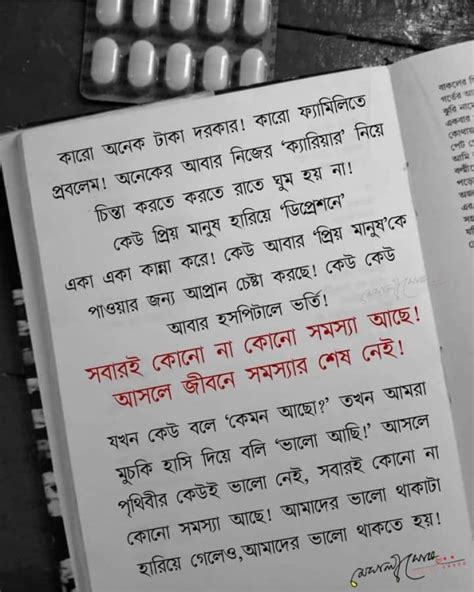 কারো অনেক টাকা দরকার! কারো ফ্যামিলিতে
প্রবলেম! অনেকের আবার নিজের 'ক্যারিয়ার' নিয়ে
চিন্তা করতে করতে রাতে ঘুম হয় না!
কেউ প্রিয় মানুষ হারিয়ে 'ডিপ্রেশনে'
একা একা কান্না করে! কেউ আবার 'প্রিয় মানুষ'কে
পাওয়ার জন্য আপ্রান চেষ্টা করছে! কেউ কেউ
আবার হসপিটালে ভর্তি!
সবারই কোনো না কোনো সমস্যা আছে!
আসলে জীবনে সমস্যার শেষ নেই!
যখন কেউ বলে 'কেমন আছো?' তখন আমরা
মুচকি হাসি দিয়ে বলি 'ভালো আছি!' আসলে
পৃথিবীর কেউই ভালো নেই, সবারই কোনো না
কোনো সমস্যা আছে! আমাদের ভালো থাকাটা
হারিয়ে গেলেও,আমাদের ভালো থাকতে হয়!